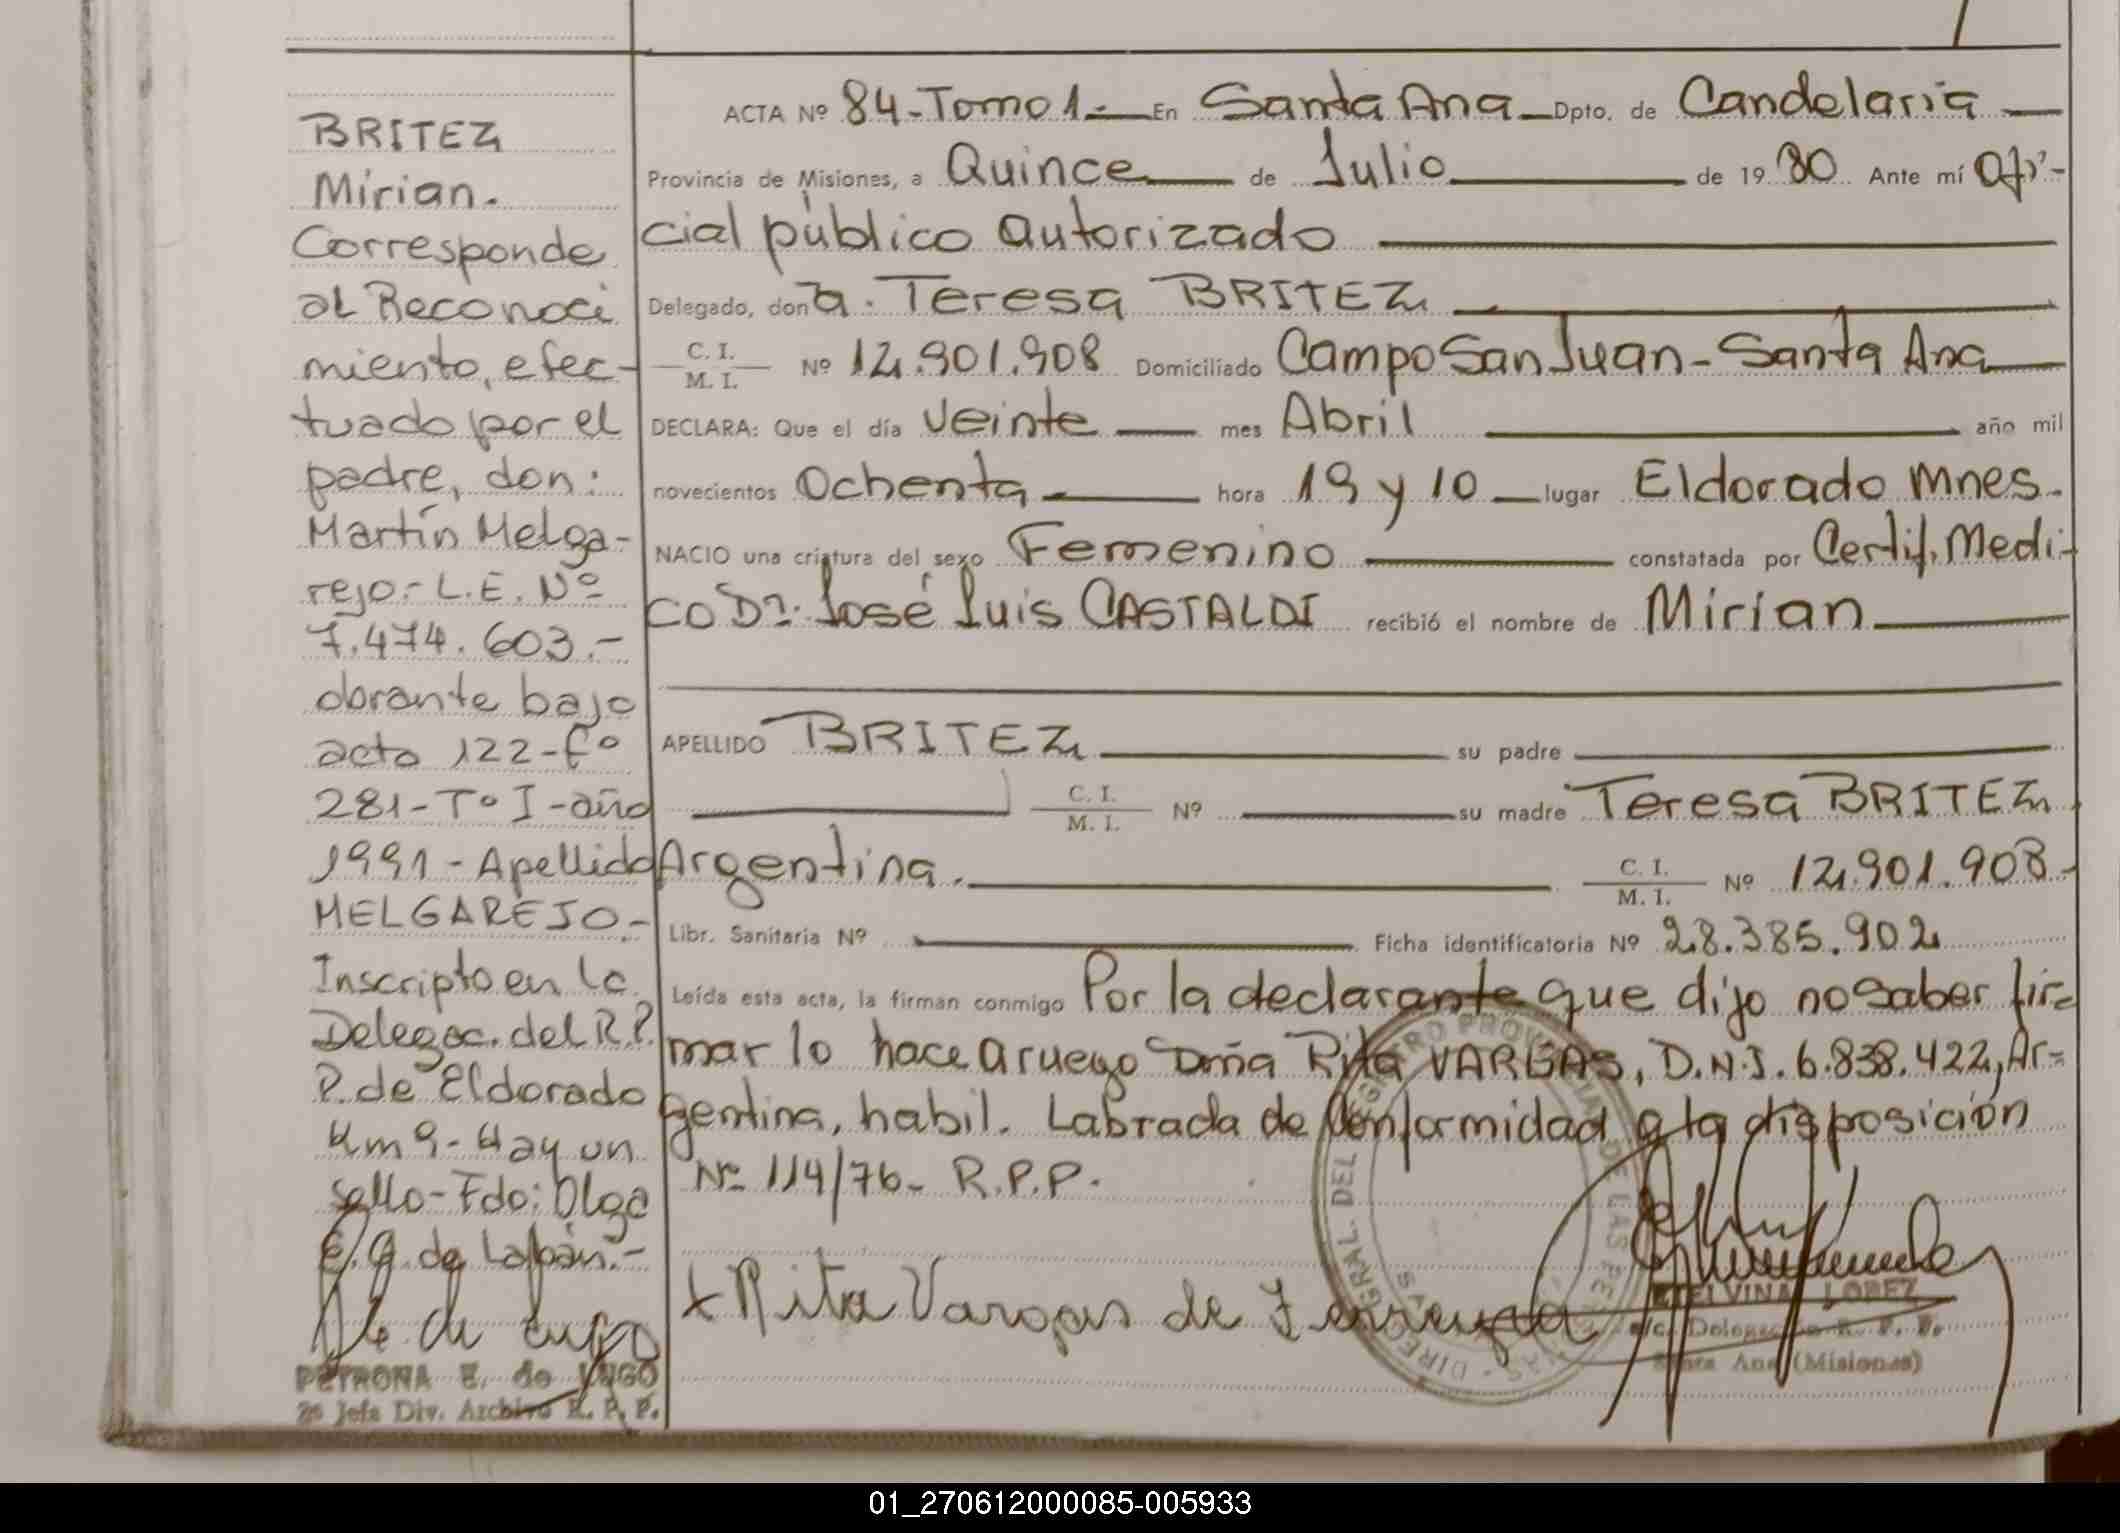 BRITEZ
Mirian.
Corresponde
al Reconoci
miento, efec-
tuado por el
padre, don:
Martín Melga-
rejo.- L.E. Nº
7.474.603.-
obrante bajo
acta 122-Fº
281-Tº I-año
1991-Apellido
MELGAREJO.-
Inscripto en la
Delegac. del R.P.
P. de Eldorado
Km 9-Hay un
sello-Fdo: Olga
E. G. de
PETRONA E. de LUGO
2º Jefa Div. Archivo R. P. P.
ACTA Nº 84-Tomo 1.- En Santa Ana Dpto. de Candelaria
Provincia de Misiones, a Quince de Julio de 1980 Ante mí Ofi-
cial público autorizado
Delegado, don a. Teresa BRITEZ
C. I. M. I. Nº 12.901.908 Domiciliado Campo San Juan-Santa Ana
DECLARA: Que el día veinte mes Abril año mil
novecientos Ochenta hora 19 y 10 lugar Eldorado Mnes.
NACIO una criatura del sexo Femenino constatada por Certif. Medi-
co Dr. José Luis CASTALDI recibió el nombre de Mirian
APELLIDO BRITEZ su padre
C. I. M. I. Nº su madre Teresa BRITEZ
Argentina. C. I. M. I. Nº 12.901.908.-
Libr. Sanitaria Nº Ficha identificatoria Nº 28.385.902
Leída esta acta, la firman conmigo Por la declarante que dijo no saber fir=
mar lo hace a ruego Doña Rita VARGAS, D.N.I. 6.838.422, Ar=
gentina, habil. Labrada de Conformidad a la disposición
Nº 114/76- R.P.P.
x Rita Vargas de
DIRECCION GRAL. DEL REGISTRO PROVINCIAL DE LAS PERSONAS
ETELVINA LOPEZ
a/c. Delegación R. P. P.
Santa Ana (Misiones)
01_270612000085-005933